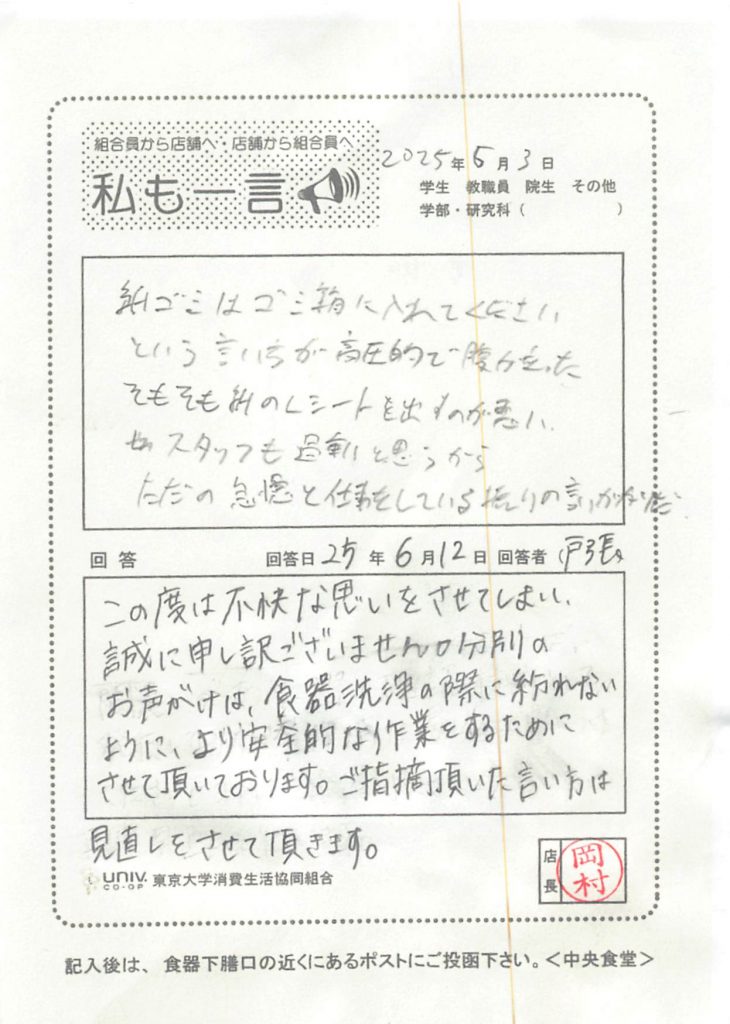 組合員から店舗へ・店舗から組合員へ
私も一言
2025年6月3日
学生 教職員 院生 その他
学部・研究科( )
紙ゴミはゴミ箱に入れてください
という言い方が高圧的で腹が立った
そもそも紙のレシートを出すのが悪い、
スタッフも過剰と思うから
ただの怠慢と仕事をしている振りの言い
回答 回答日25年6月12日 回答者 戸張
この度は不快な思いをさせてしまい、
誠に申し訳ございません。分別の
お声がけは、食器洗浄の際に紛れない
ように、より安全的な作業をするために
させて頂いております。ご指摘頂いた言い方は
見直しをさせて頂きます。
UNIV. CO-OP 東京大学消費生活協同組合
店長 岡村
記入後は、食器下膳口の近くにあるポストにご投函下さい。<中央食堂>